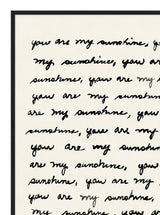 you are my sunshine, y
my sunshine, you ar
sunshine, you are my
you are my sunshin
are my sunshine, you
sunshine, you are my
you are my sunshine,
are my sunshine, you
sunshine, you are my
you are my sunshine,
my sunshine, you ar